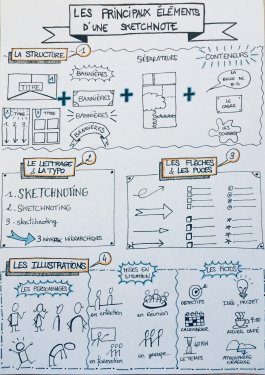 LES PRINCIPAUX ÉLÉMENTS
D'UNE SKETCHNOTE
LA STRUCTURE 1
SÉPARATEURS
CONTENEURS
BANNIÈRES
TITRE
BANNIÈRES
LA BULLE DE
TITRE
TITRE
1 2 3
BANNIÈRES
LE CADRE
BANNIÈRES
LE LETTRAGE
& LA TYPO
2
LES FLÈCHES
& LES PUCES
3
1. SKETCHNOTING
2. SKETCHNOTING
3. sketchnoting
3 NIVEAUX HIÉRARCHIQUES
LES ILLUSTRATIONS 4
LES PERSONNAGES
MISES EN
SITUATION
LES PICTOS
en réunion
OBJECTIFS
IDÉE PROJET
CALENDRIER
ACCUEIL CAFÉ
en formation
en groupe...
LE TEMPS
ATMOSPHÈRE